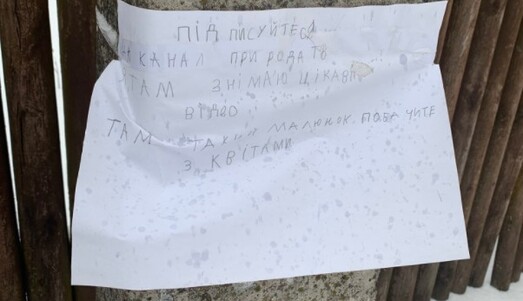 ПІДПИСУЙТЕСЬ...
КАНАЛ ПРИРОДА ТВ
ТАМ ЗНІМАЮ ЦІКАВІ
ВІДЕО
ТАМ МАЛЮНОК ПОБАЧИТЕ
З КВІТАМИ